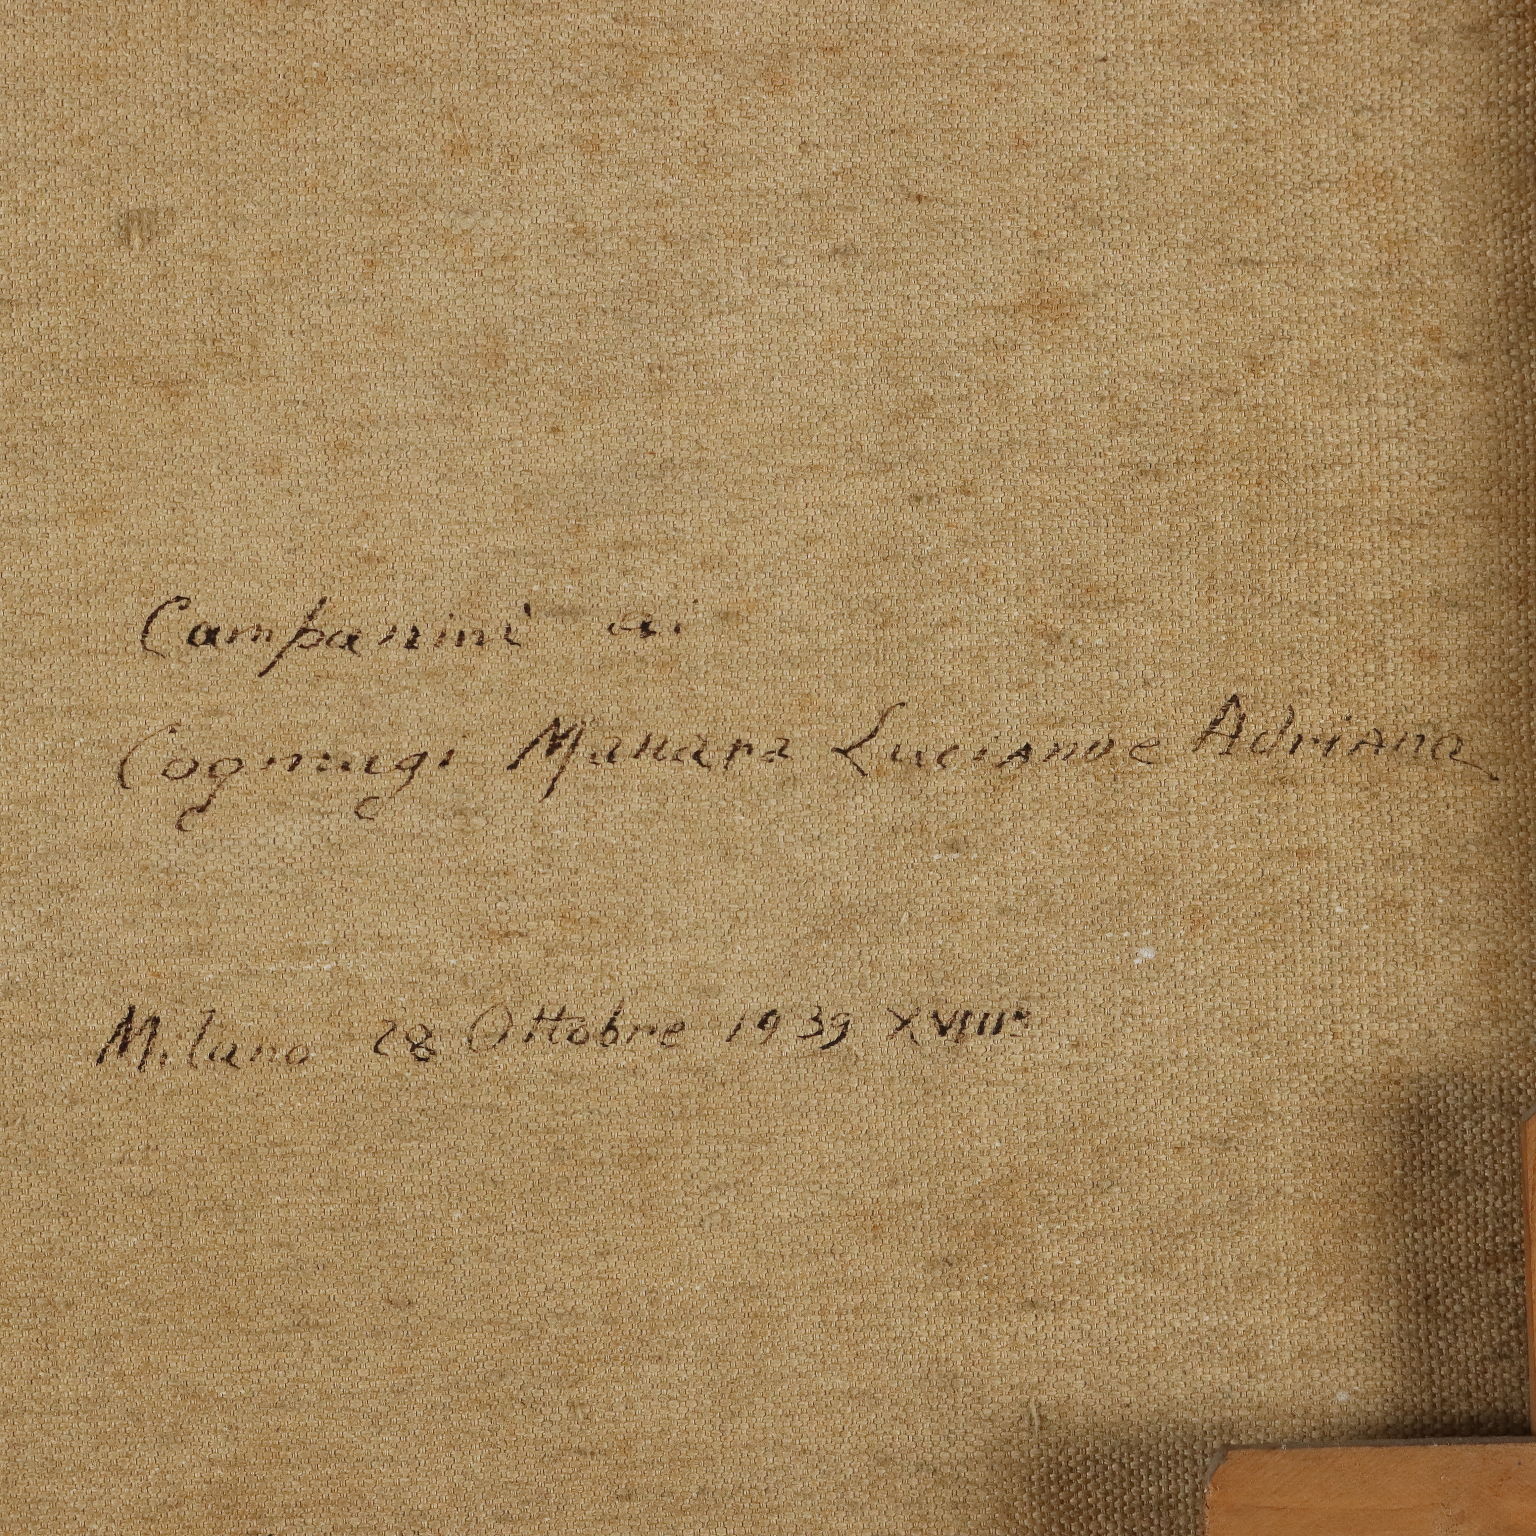 Campanini ai
Cogniugi Manara Luciano e Adriana
Milano 28 Ottobre 1939 XVIIIº